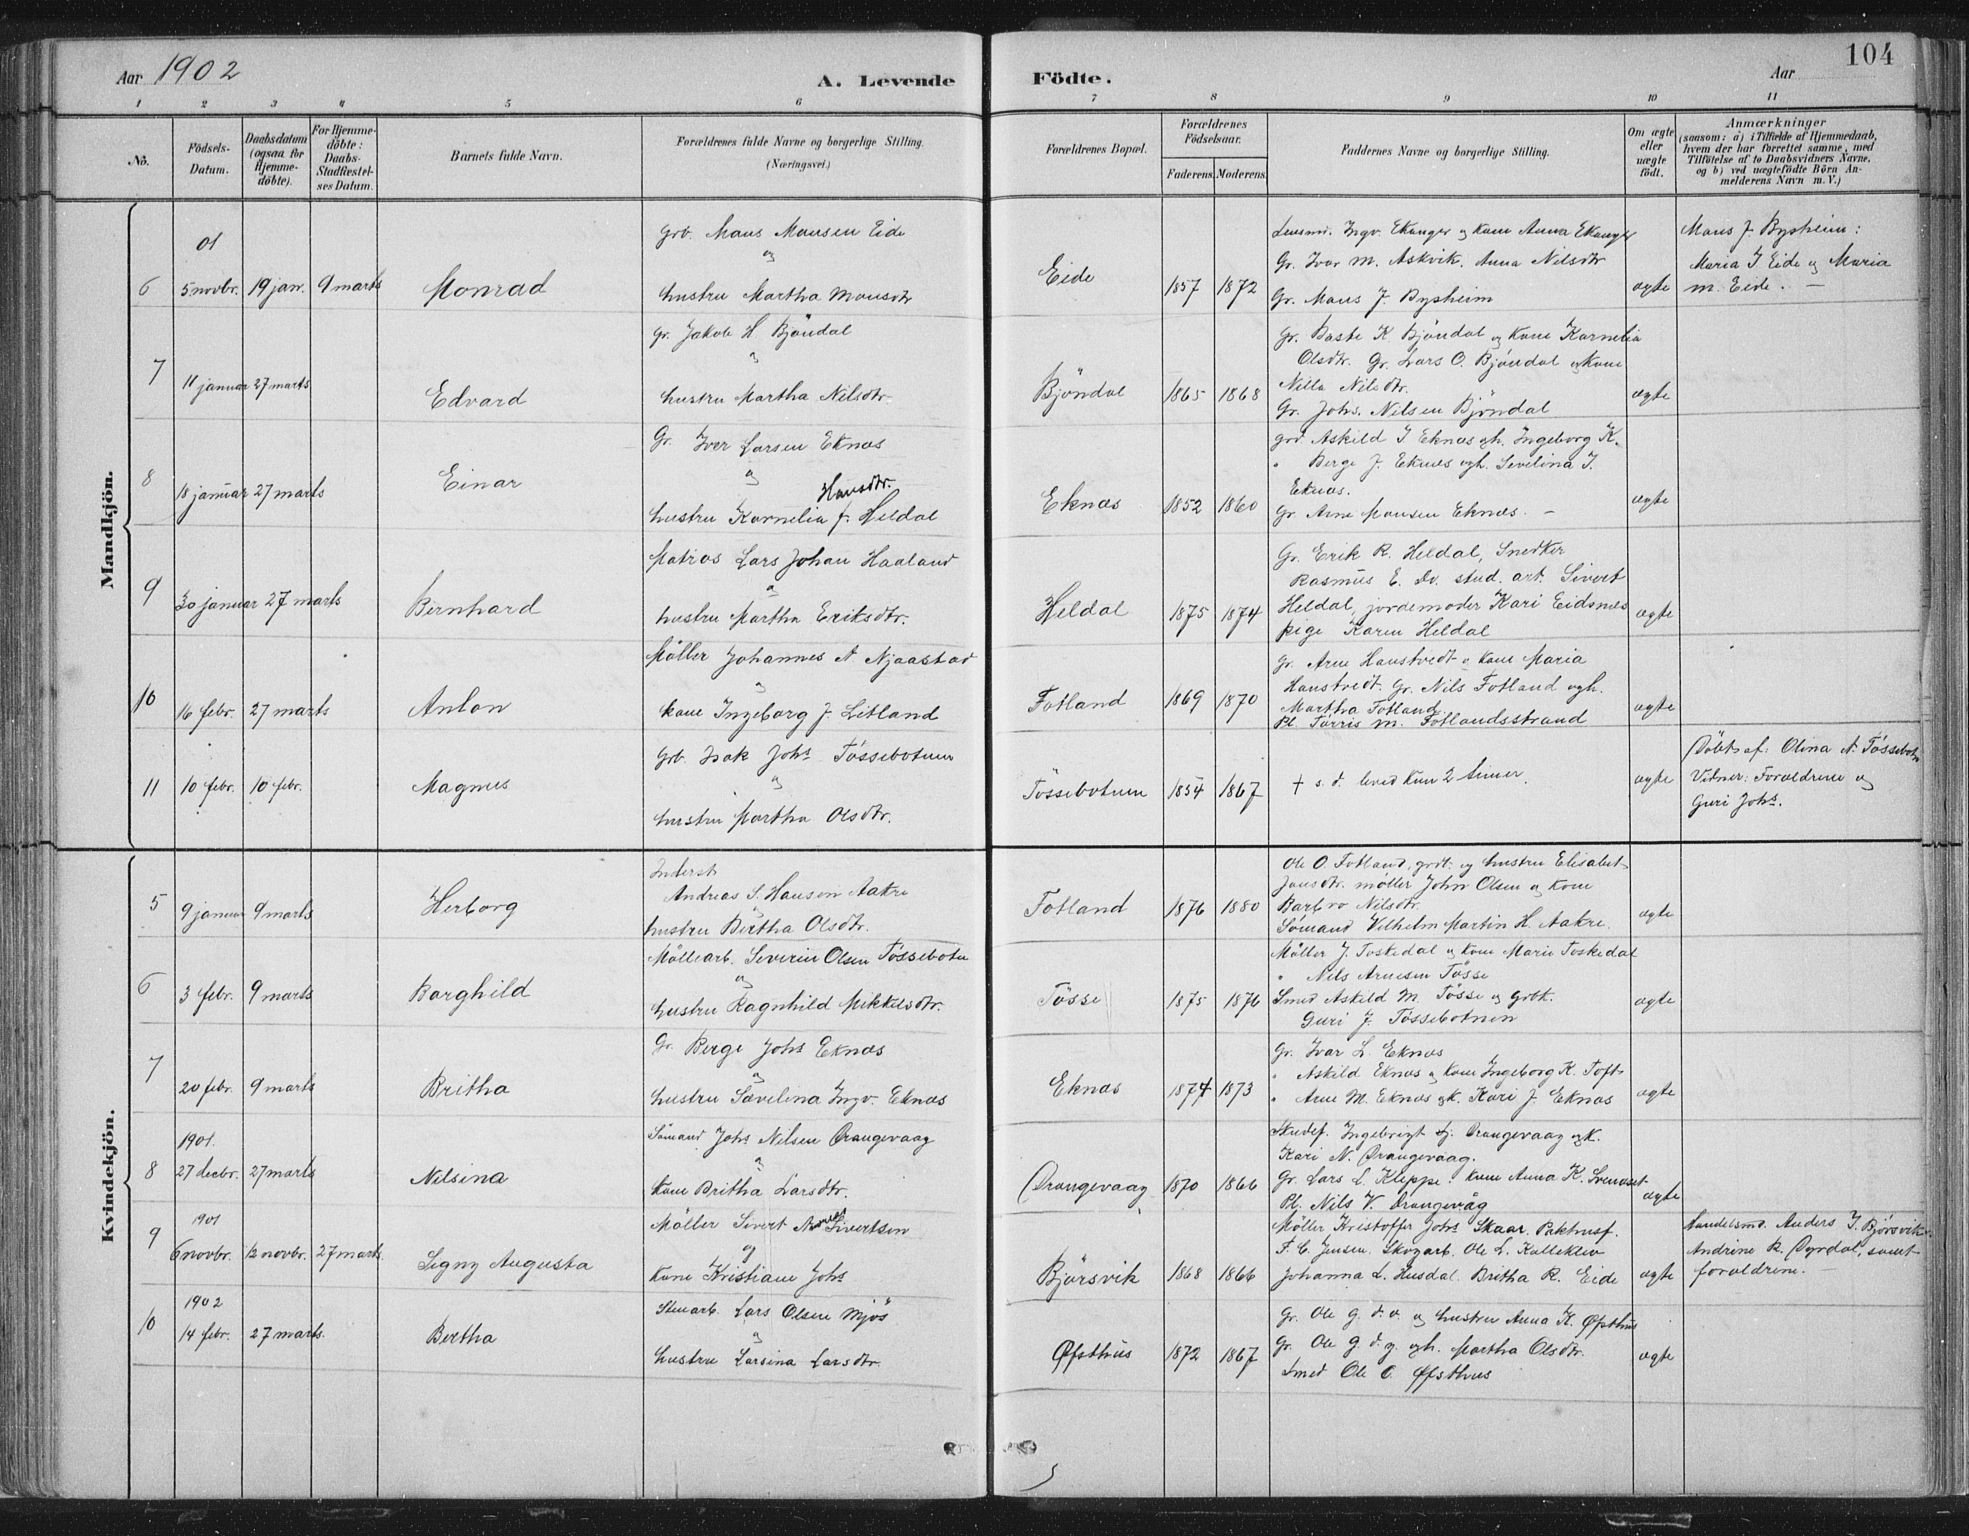 104
Aar 1902
A. Levende Födte.
Aar
1 2 3 4 5 6 7 8 9 10 11
No.
Födsels-Datum.
Daabsdatum (ogsaa for Hjemme-döbte).
For Hjemme-döbte: Daabs-Stadfæstel-ses Datum.
Barnets fulde Navn.
Forældrenes fulde Navne og borgerlige Stilling. (Næringsvei.)
Forældrenes Bopæl.
Forældrenes Födselsaar.
Faderens. Moderens.
Faddernes Navne og borgerlige Stilling.
Om ægte eller uægte födt.
Anmærkninger (saasom: a) i Tilfælde af Hjemmedaab, hvem der har forrettet samme, med Tilföielse af to Daabsvidners Navne, og b) ved uægtefödte Börn Anmelderens Navn m. V.)
Mandkjön.
01
6 5 novbr. 19 jan. 9 marts Monrad
Grb. Mons Monsen Eide
og
hustru Martha Monsdtr
Eide 1857 1872
Lensmd. Ingv. Ekanger og kone Anna Ekanger
Gr. Ivar M. Askvik. Anna Nilsdtr
Gr. Mons J. Bysheim
ægte
Mons J. Bysheim:
Maria I Eide og Maria
M. Eide. —
7 11 januar 27 marts Edvard
Gr. Jakob H. Bjöndal
og
hustru Martha Nilsdtr.
Bjöndal 1865 1868
Gr. Baste K. Bjöndal og kone Kornelia
Olsdtr. Gr. Lars O. Bjöndal og kone
Nilla Nilsdtr.
Gr. Johs. Nilsen Bjöndal
ægte
8 18 januar 27 marts Einar
Gr. Iver Larsen Eknæs
og
Hansdtr.
hustru Kornelia f. Heldal
Eknæs 1852 1860
grd Askild I Eknæs ogh. Ingeborg K.
" Berge J. Eknæs ogh. Sevelina I.
Eknæs.
Gr. Arne Monsen Eknæs. —
ægte
9 30 januar 27 marts Bernhard
Matros Lars Johan Haaland
og
hustru Martha Eriksdtr.
Heldal 1875 1874
Gr. Erik R. Heldal, Snedker
Rasmus E. Do. stud. art. Sivert
Heldal, jordemoder Kari Eidsnes
pige Karen Heldal
ægte
10 16 febr. 27 marts Anton
Möller Johannes A. Njaastad
og
kone Ingeborg J. Litland
Fotland 1869 1870
Gr. Arne Hanstvedt og kone Maria
Hanstvedt. Gr. Nils Fotland ogh.
Martha Fotland.
Pl. Torris M. Fotlandsstrand
ægte
11 10 febr. 10 febr. Magnus
Grb. Isak Johs Tössebotnen
og
hustru Martha Olsdtr.
Tössebotnen 1854 1867
† s. d. leved kun 2 timer.
ægte
Döbt af: Olina A. Tössebotn
Vidner: Forældrene og
Guri Johs.
Kvindekjön.
5 9 januar 9 marts Herborg
Inderst
Andreas S. Hanson Aakre
hustru Bertha Olsdtr.
Fotland 1876 1880
Ole O. Fotland, grdt. og hustru Elisabet
Jonsdtr. möller John Olsen og kone
Barbro Nilsdtr.
Sömand Vilhelm Martin H. Aakre.
ægte
6 3 febr. 9 marts Borghild
Möllearb. Severin Olsen Tössebotn
og
hustru Ragnhild Mikkelsdtr.
Tösse 1875 1876
Möller J. Toskedal og kone Marie Toskedal
" Nils Arnesen Tösse
Smed Askild M. Tösse og grbk.
Guri J. Tössebotnen
ægte
7 20 febr. 9 marts Britha
Gr. Berge Johs Eknæs
og
hustru Sævelena Ingv. Eknæs
Eknæs 1874 1873
Gr. Ivar L. Eknæs
" Askild Eknæs og kone Ingeborg K. Toft
" Arne M. Eknæs og k. Kari J. Eknæs
ægte
1901.
8 27 decbr. 27 marts Nilsina
Sömand Johs Nilsen Drangevaag
og
kone Britha Larsdtr.
Drangevaag 1870 1866
Skudef. Ingebrigt Drangevaag og k.
Kari N. Drangevaag.
Gr. Lars L. Kleppe. kone Anna K.
Pl. Nils V. Drangevåg
ægte
1901
9 6 novbr. 12 novbr. 27 marts Signy Augusta
Möller Sivert Sivertsen
og
kone Kristiane Johs
Bjørsvik 1868 1866
Möller Kristoffer Johs Skaar. Pakhusf.
F. C. Jensen. Skogarb. Ole L. Kolleklev
Johanna L. Husdal. Britha R. Eide
ægte
Handelsmd. Anders I. Bjørsvik
Andrine R. Dyrdal, samt
forældrene. —
1902
10 14 febr. 27 marts. Bertha
Stenarb. Lars Olsen Mjös
og
hustru Larsina Larsdtr.
Øfsthus 1872 1867
Gr. Ole g. d. o. og hustru Anna K. Øfsthus
Gr. Ole g. d. y. ogh. Martha Olsdtr.
Smed Ole O. Øfsthus
ægte